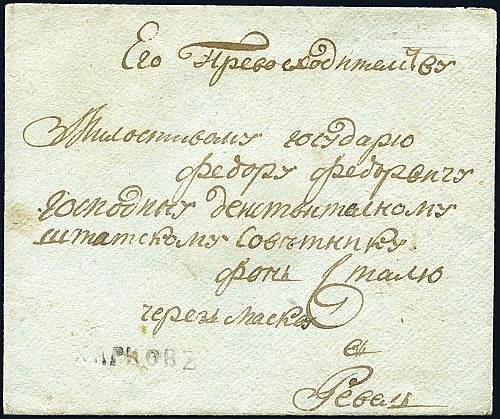 Его Превосходителству
Милостивому государю
федору федоровичу
Господину действителному
штатскому Советнику
фонъ Сталю
черезъ маскву
въ
Ревель
ХАРКОВЪ